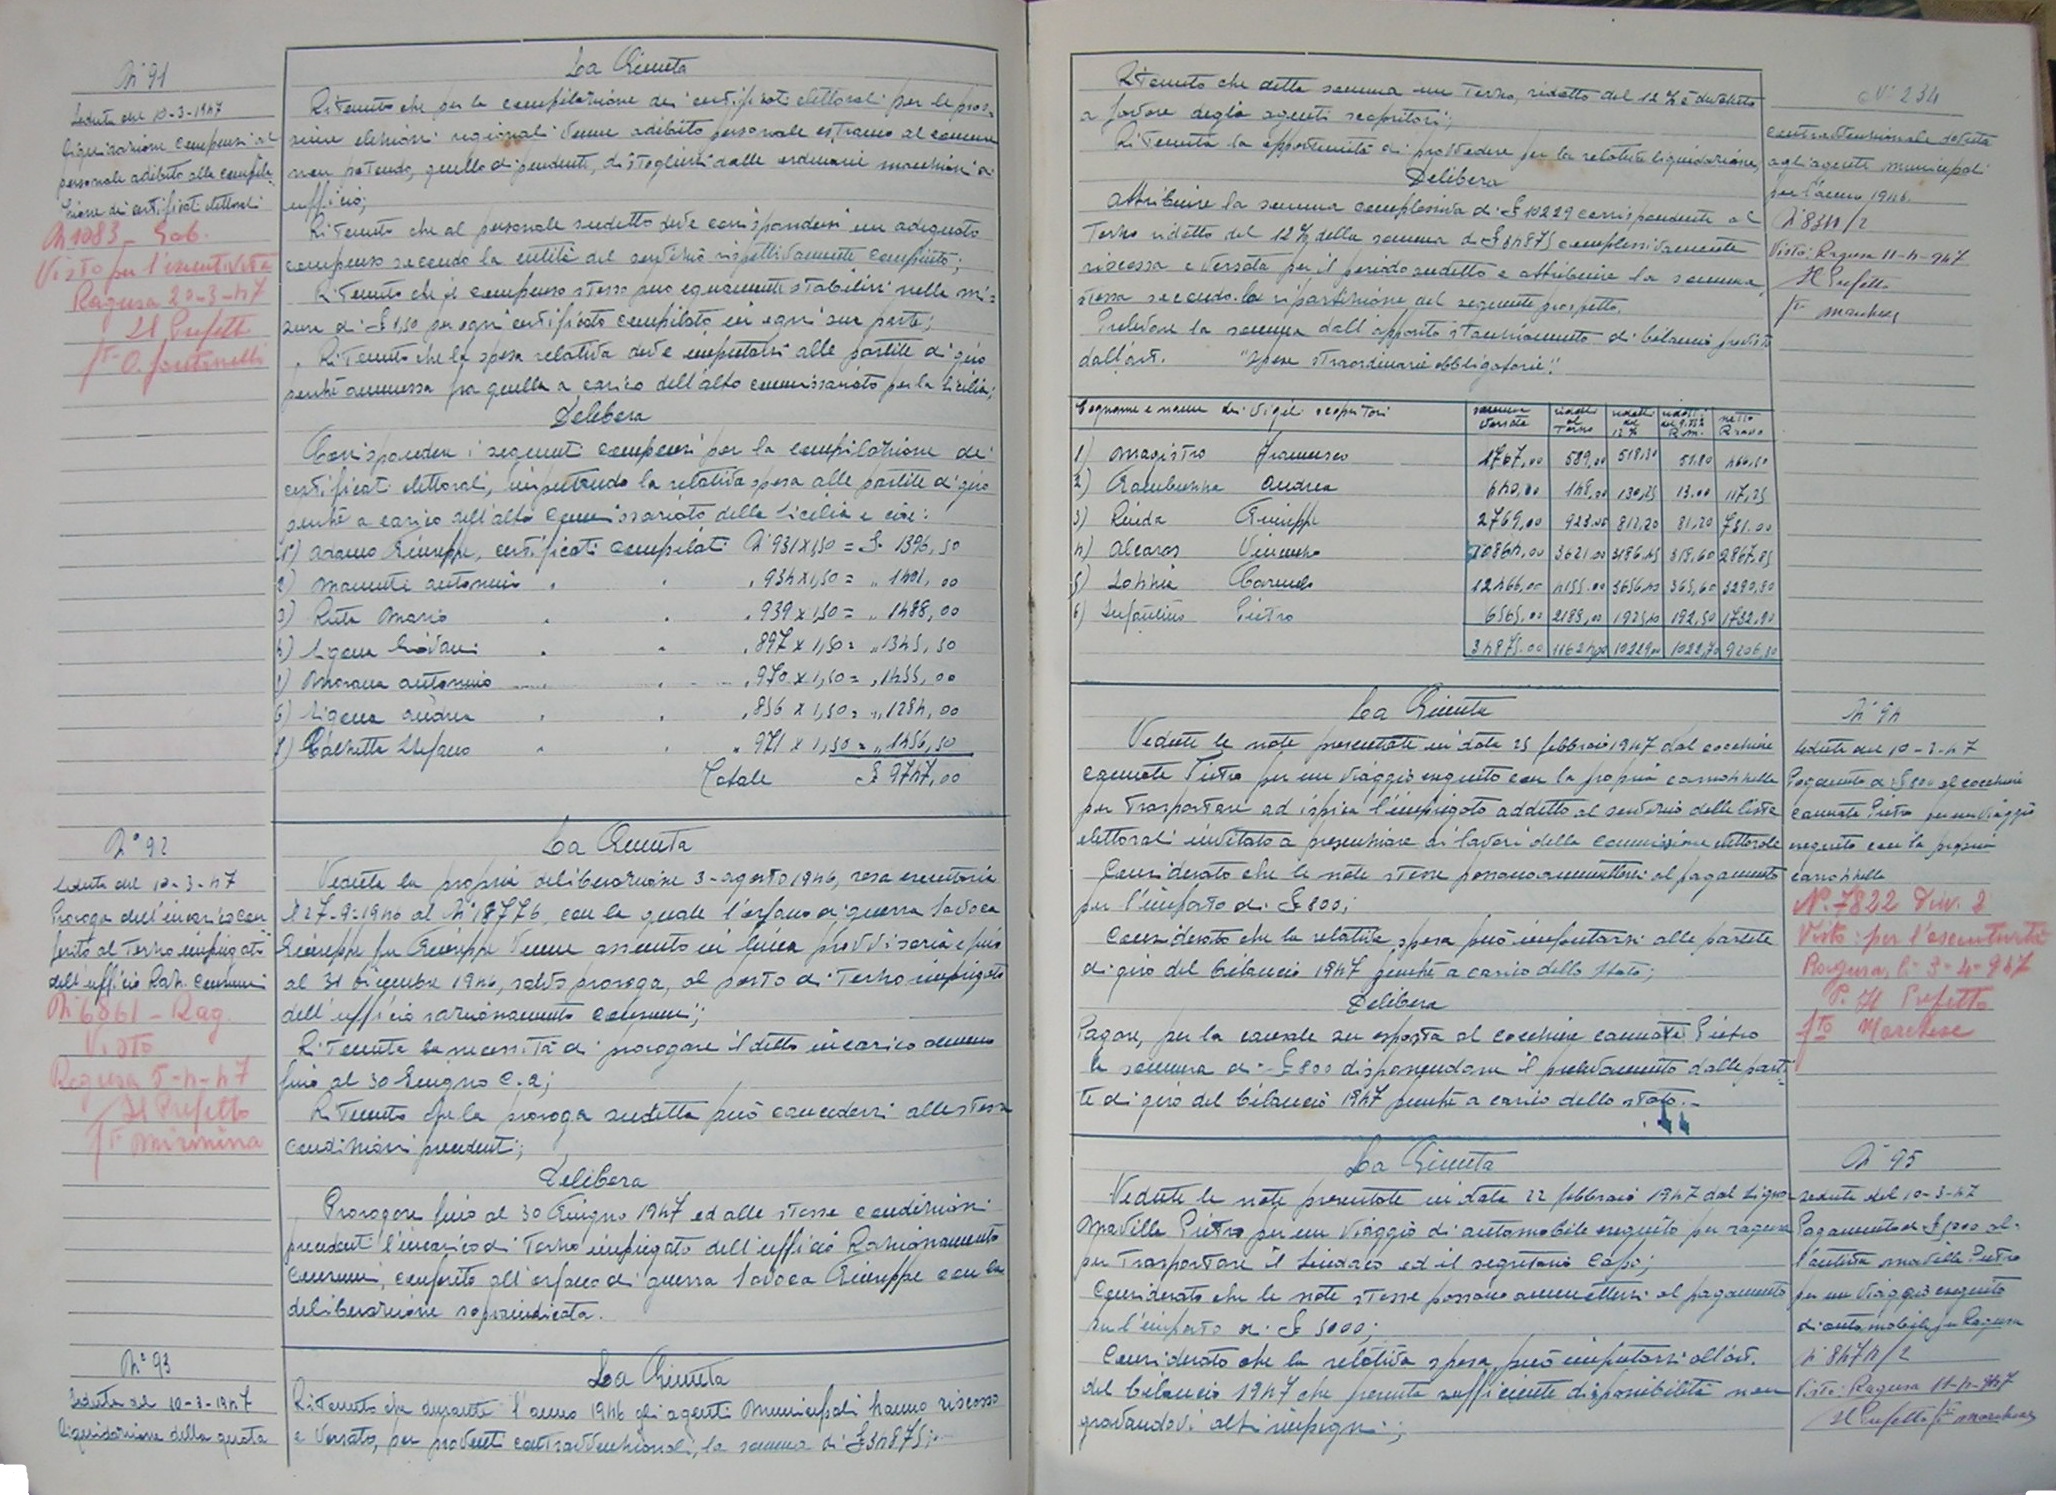 N° 91
Seduta del 10-3-1947
Liquidazione compensi al
personale adibito alla compila-
zione dei certificati elettorali
N 1083 - Gab.
Visto per l'esecutività
Ragusa 20-3-47
Il Prefetto
fto
La Giunta
Ritenuto che per la compilazione dei certificati elettorali per le pros-
sime elezioni regionali venne adibito personale estraneo al comune
non potendo, quello dipendente, distogliersi dalle ordinarie mansioni di
ufficio;
Ritenuto che al personale sudetto deve corrispondersi un adeguato
compenso secondo la entità del servizio rispettivamente compiuto;
Ritenuto che il compenso stesso può equamente stabilirsi nella mi-
sura di £ 1,50 per ogni certificato compilato in ogni sua parte;
Ritenuto che la spesa relativa deve imputarsi alle partite di giro
perché ammessa fra quelle a carico dell'alto commissariato per la Sicilia;
Delibera
Corrispondere i seguenti compensi per la compilazione dei
certificati elettorali, imputando la relativa spesa alle partite di giro
perché a carico dell'alto Commissariato della Sicilia e cioè:
1) Adamo Giuseppe, certificati compilati N° 931 x 1,50 = £. 1396,50
2) Mamente Antonino " " " 934 x 1,50 = " 1401,00
3) Ruta Mario " " " 939 x 1,50 = " 1488,00
4) Ligena Giovanni " " " 897 x 1,50 = " 1345,50
5) Morana Antonino " " 970 x 1,50 = " 1455,00
6) Ligena Andrea " " " 856 x 1,50 = " 1284,00
7) Calvetta Stefano " " " 971 x 1,50 = " 1456,50
Totale £ 9747,00
N° 92
Seduta del 10-3-47
Proroga dell'incarico con
ferito al terzo impiegato
dell'ufficio Raz. Consumi
N° 6861 - Rag.
Visto
Ragusa 5-4-47
Il Prefetto
fto Mirmina
La Giunta
Veduta la propria deliberazione 3-agosto 1946, resa esecutoria
il 27-9-1946 al N° 18776, con la quale l'orfano di guerra Savoca
Giuseppe fu Giuseppe venne assunto in linea provvisoria e fino
al 31 dicembre 1946, salvo proroga, al posto di terzo impiegato
dell'ufficio razionamento consumi;
Ritenuta la necessità di prorogare il detto incarico almeno
fino al 30 Giugno c.a;
Ritenuto che la proroga sudetta può concedersi alle stesse
condizioni precedenti;
Delibera
Prorogare fino al 30 Giugno 1947 ed alle stesse condizioni
precedenti l'incarico di terzo impiegato dell'ufficio Razionamento
Consumi, conferito all'orfano di guerra Savoca Giuseppe con la
deliberazione sopraindicata.
N° 93
Seduta del 10-3-1947
Liquidazione della quota
La Giunta
Ritenuto che durante l'anno 1946 gli agenti Municipali hanno riscosso
e versato, per proventi contravvenzionali, la somma di £ 34875;
N° 234
Ritenuto che detta somma un terzo, ridotto del 12% è devoluto
a favore degli agenti scopritori;
Ritenuta la opportunità di provvedere per la relativa liquidazione,
Delibera
Attribuire la somma complessiva di £ 10229 corrispondente al
terzo ridotto del 12% della somma di £ 34875 complessivamente
riscossa e versata per il periodo sudetto e attribuire la somma
stessa secondo la ripartizione del seguente prospetto.
Prelevare la somma dall'apposito stanziamento di bilancio previsto
dall'art. "Spese straordinarie obbligatorie".
contravvenzionale dovuta
agli agenti municipali
per l'anno 1946.
N° 8341/2
Visto: Ragusa 11-4-947
Il Prefetto
fto Marchese
Cognome e nome dei Vigili scopritori somma versata ridotta al terzo ridotti del 12% ridotti R.M. netto
1) Magistro Francesco 1767,00 589,00 518,30 51.80 466,50
2) Andrea 440,00 148,00 130,25 13.00 117,25
3) Giuseppe 2769,00 923.00 812,20 81,20 731.00
4) Alcaras Vincenzo 10864,00 3621.00 3186,45 318,60 2867,85
5) Carmelo 12466,00 4155.00 3656,40 365,60 3290,80
6) Pietro 6565,00 2189,00 1925,40 192,50 1732,90
34875.00 11624,00 10229,00 1022,70 9206,30
La Giunta
Vedute le note presentate in data 25 febbraio 1947 dal cocchiere
Cannata Pietro per un viaggio eseguito con la propria carrozzella
per trasportare ad Ispica l'impiegato addetto al servizio delle liste
elettorali invitato a presenziare ai lavori della Commissione elettorale
Considerato che le note stesse possono ammettersi al pagamento
per l'importo di £ 800;
Considerato che la relativa spesa può imputarsi alle partite
di giro del bilancio 1947 perché a carico dello Stato;
Delibera
Pagare, per la causale su esposta al cocchiere Cannata Pietro
la somma di £ 800 disponendone il prelevamento dalle parti-
te di giro del bilancio 1947 perché a carico dello stato.-
N° 94
Seduta del 10-3-47
Pagamento di £ 800 al cocchiere
Cannata Pietro per un viaggio
eseguito con la propria
carrozzella
N° 7822 Div. 2
Visto: per l'esecutività
Ragusa, li 3-4-947
P. Il Prefetto
fto Marchese
La Giunta
Vedute le note presentate in data 22 febbraio 1947 dal Signor
Mavilla Pietro per un viaggio di automobile eseguito per Ragusa
per trasportare il Sindaco ed il segretario Capo;
Considerato che le note stesse possono ammettersi al pagamento
per l'importo di £ 5000;
Considerato che la relativa spesa può imputarsi all'art.
del bilancio 1947 che presenta sufficiente disponibilità non
gravandovi altri impegni;
N° 95
Seduta del 10-3-47
Pagamento di £ 5000 al-
l'autista Mavilla Pietro
per un viaggio eseguito
di automobile per Ragusa
N° 8474/2
Visto: Ragusa 11-4-947
Il Prefetto fto Marchese